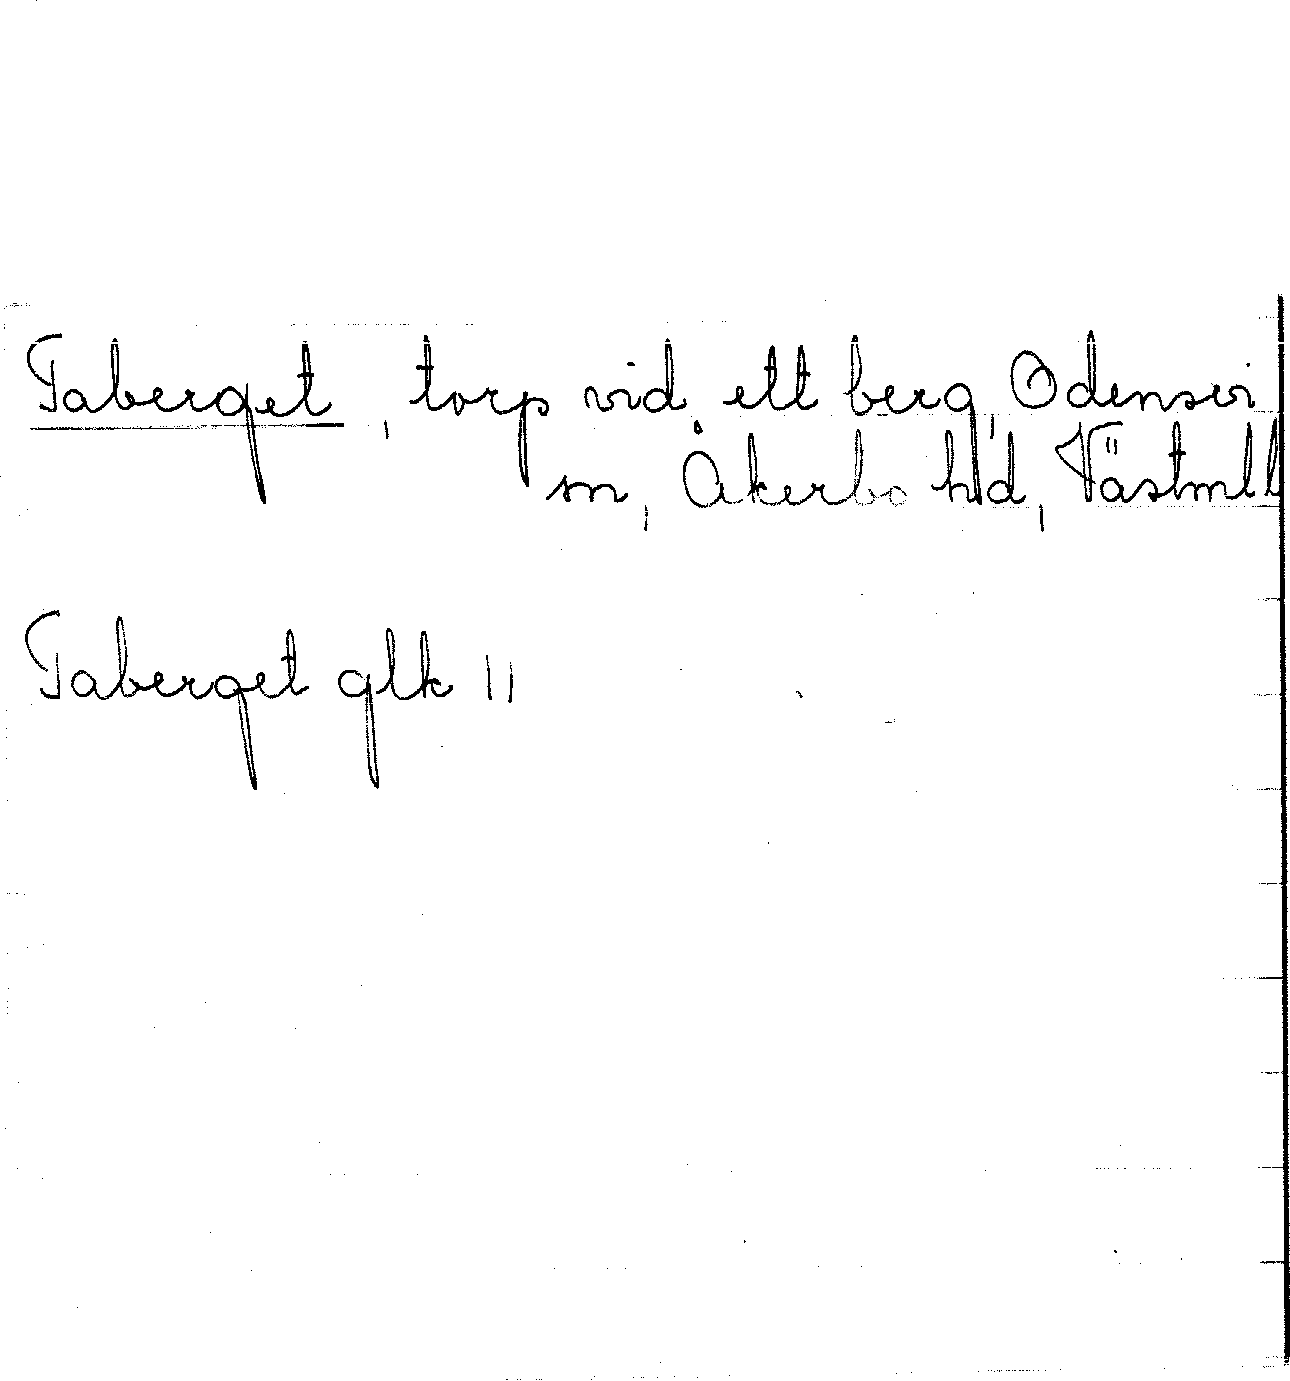 Taberget, torp vid ett berg, Odensvi
sn, Åkerbo hd, Västmll
Taberget glk 11